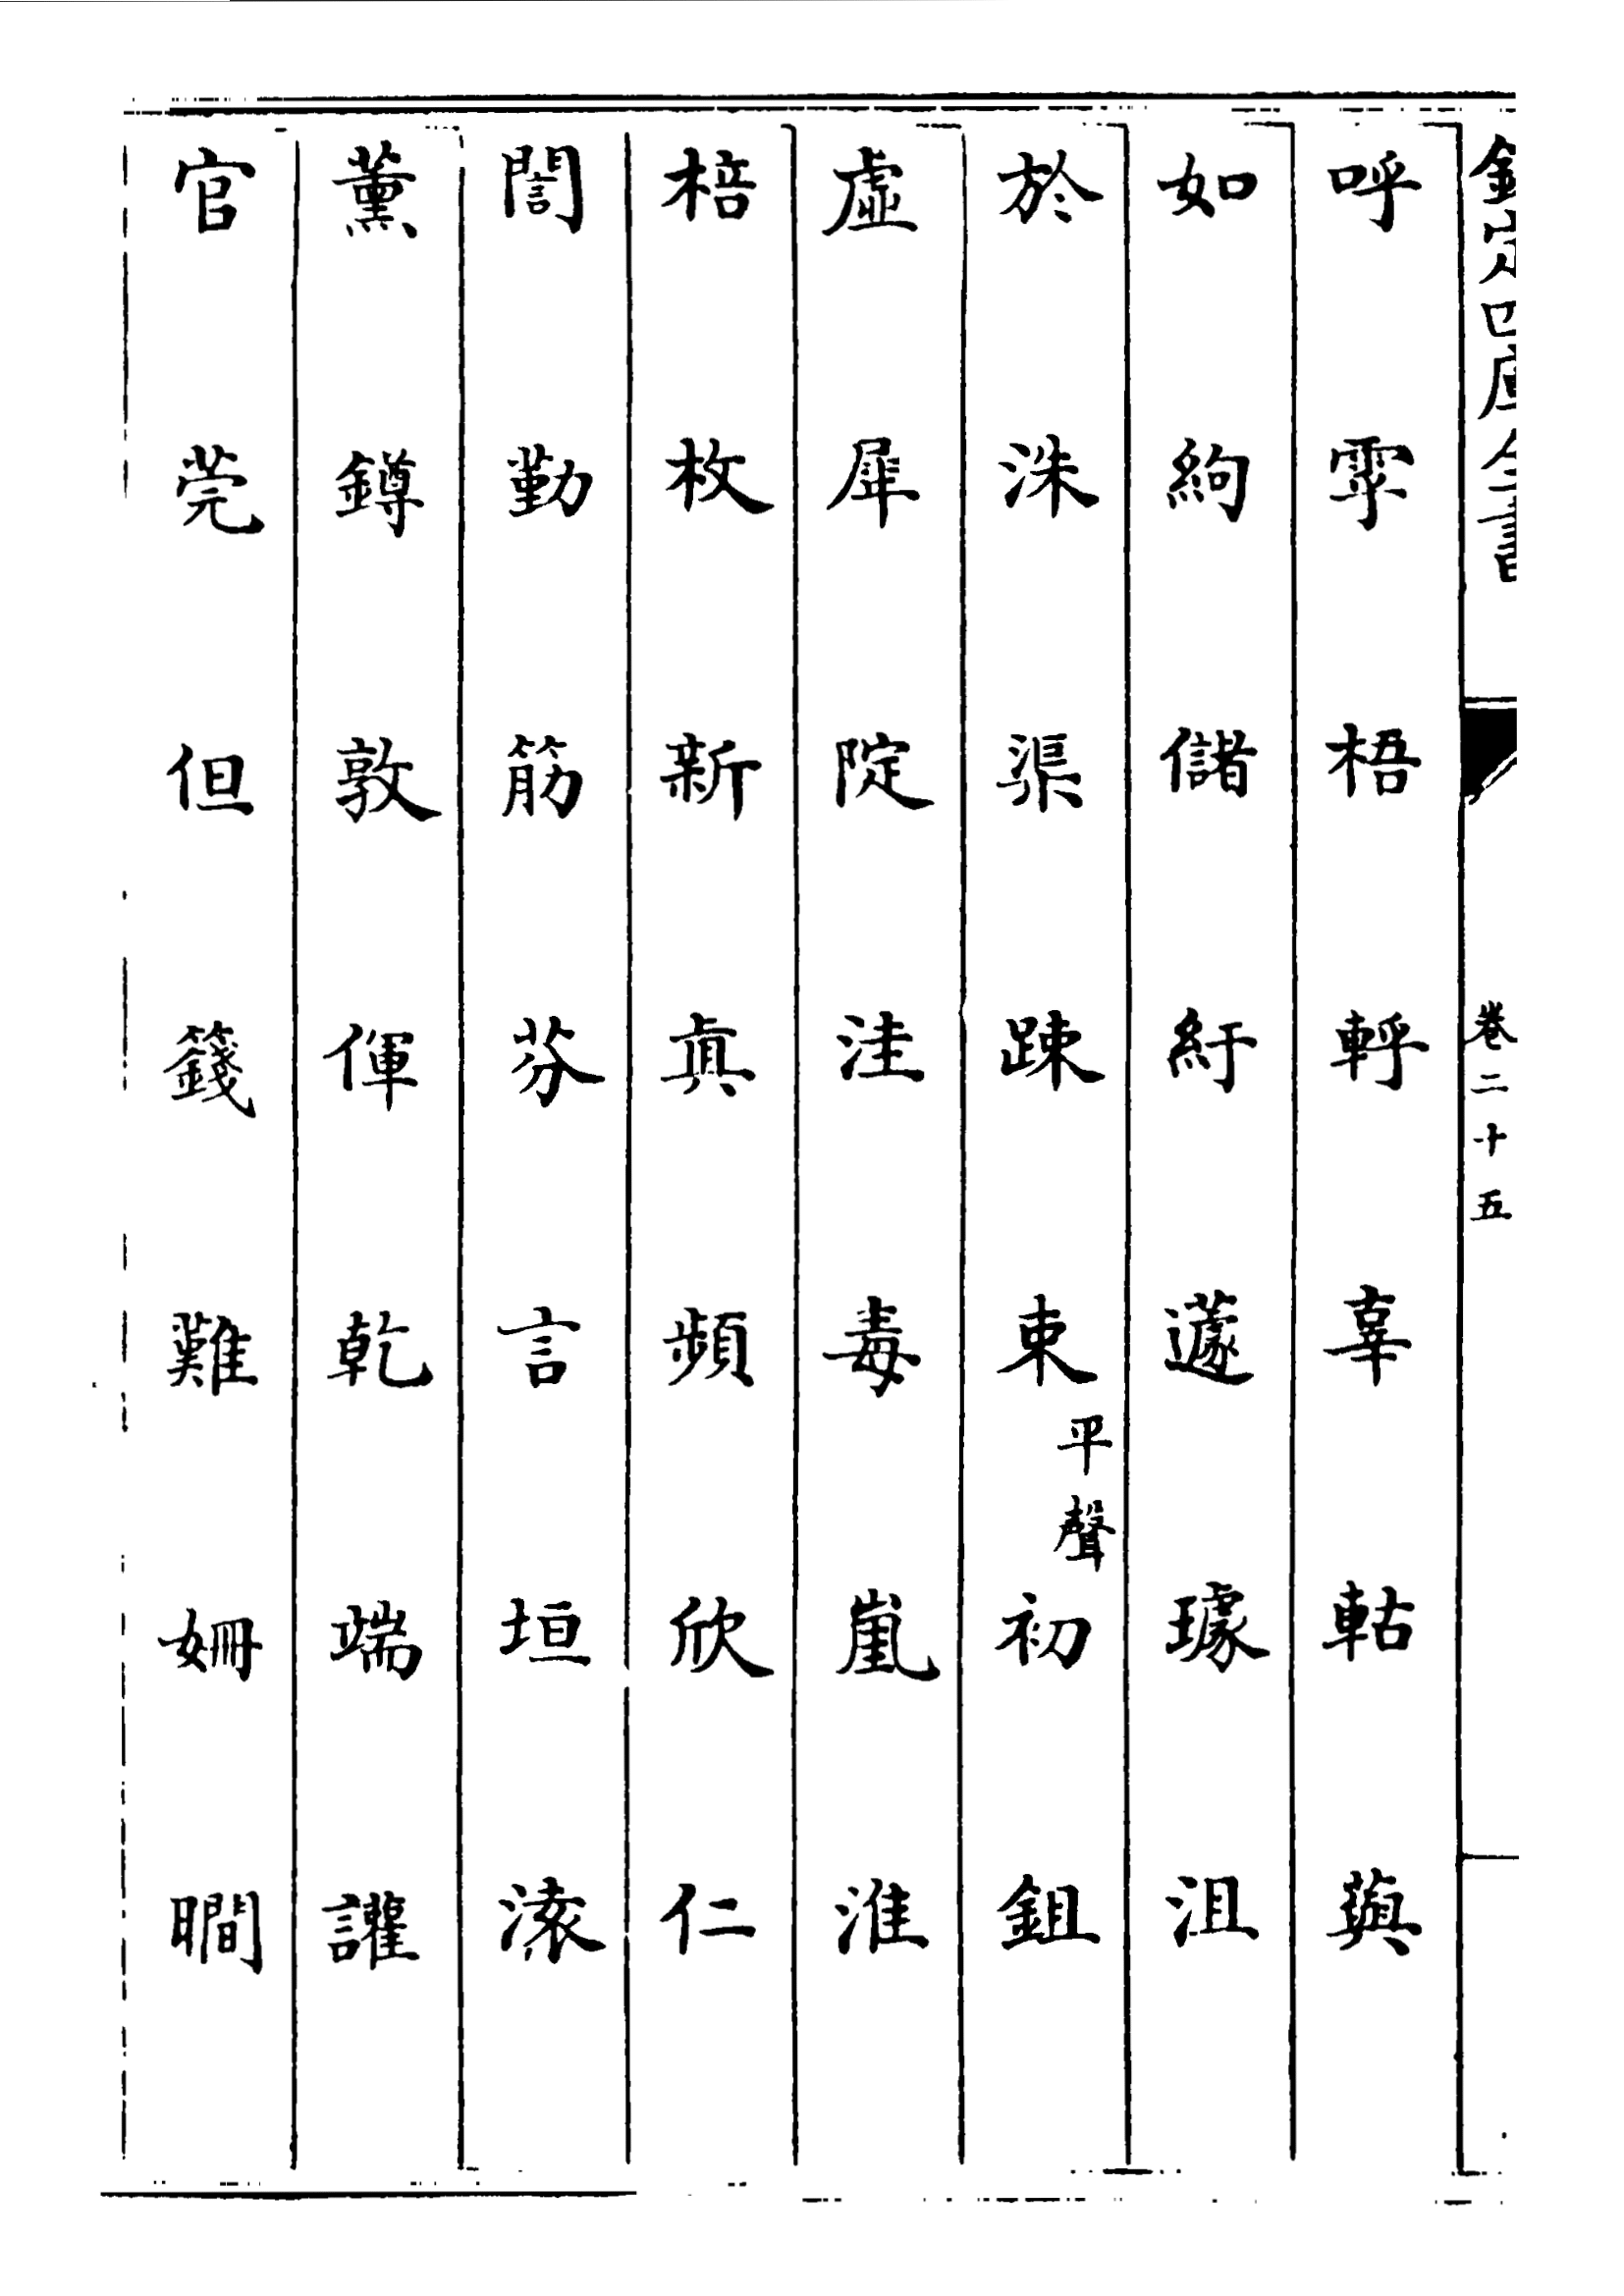 欽定四庫全書 卷二十五
呼雽梧軤辜軲䓊
如絇儲紆蘧璩沮
於洙渠踈束平聲初鉏
虛犀院洼毒嵐淮
棓枚新真頻欣仁
誾勤筋芬言垣滾
薰鐏敦㑮乾端讙
官莞但籛難姍瞷